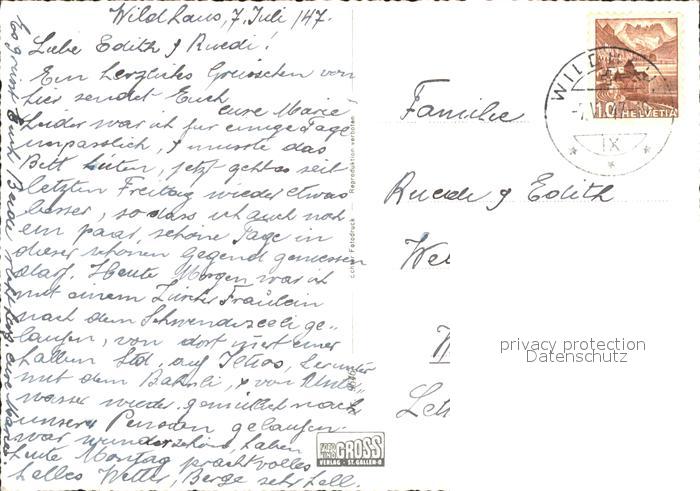 Wildhaus, 7. Juli /47.
Liebe Edith & Ruedi!
Ein herzliches Grüsschen von
hier sendet Euch
eure Marie
Leider war ich für einige Tage
unpässlich, & musste das
Bett hüten, jetzt geht es seit
letzten Freitag wieder etwas
besser, so dass ich auch noch
ein paar schöne Tage in
dieser schönen Gegend geniessen
darf. Heute Morgen war ich
mit einem Zürcher Fräulein
nach dem Schwendiseeli ge-
laufen, von dort mit einer
halben Std. auf Iltios, herunter
mit dem Bähnli, & von Unter-
wasser wieder gemütlich nach
unserer Pension gelaufen.
war wunderschön, haben
heute Montag prachtvolles
helles Wetter, Berge sehr hell.
Familie
Ruedi & Edith
We
Echter Fotodruck
Reproduktion verboten
FOTO GROSS
VERLAG - ST. GALLEN-O
WILDH
IX
10 HELVETIA
privacy protection
Datenschutz